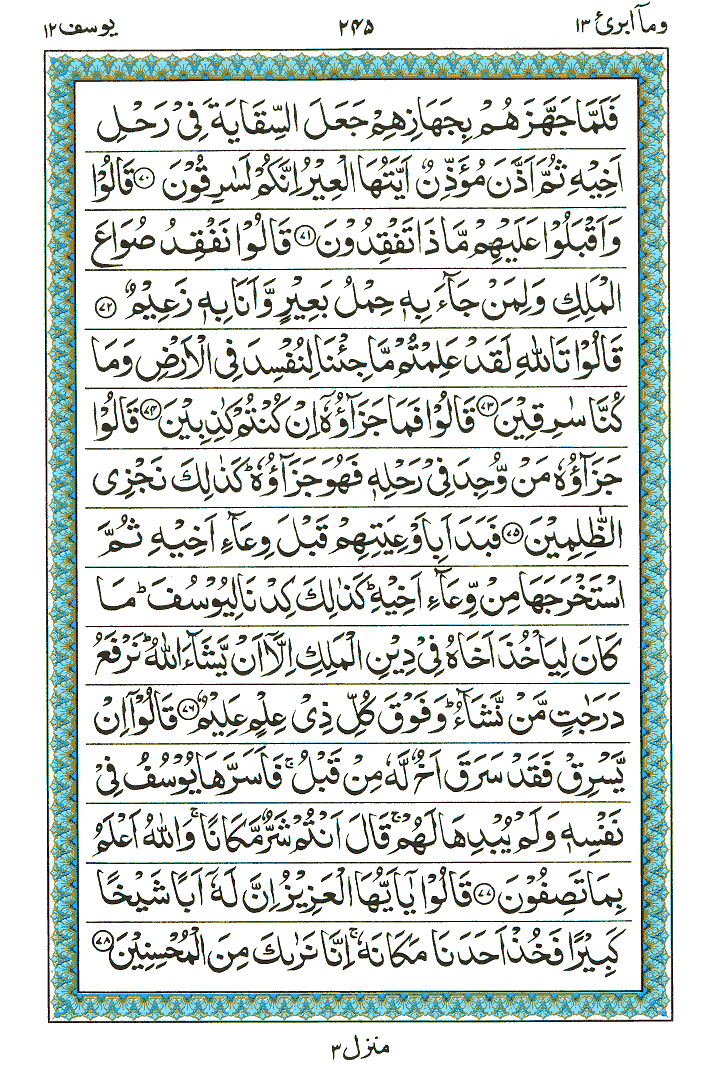 وما ابرئ ١٣
٢٤٥
يوسف ١٢
فَلَمَّا جَهَّزَهُمْ بِجَهَازِهِمْ جَعَلَ السِّقَايَةَ فِىْ رَحْلِ
اَخِيْهِ ثُمَّ اَذَّنَ مُؤَذِّنٌ اَيَّتُهَا الْعِيْرُ اِنَّكُمْ لَسٰرِقُوْنَ ﴿٧٠﴾ قَالُوْا
وَاَقْبَلُوْا عَلَيْهِمْ مَّاذَا تَفْقِدُوْنَ ﴿٧١﴾ قَالُوْا نَفْقِدُ صُوَاعَ
الْمَلِكِ وَلِمَنْ جَآءَ بِهٖ حِمْلُ بَعِيْرٍ وَّاَنَا بِهٖ زَعِيْمٌ ﴿٧٢﴾
قَالُوْا تَاللّٰهِ لَقَدْ عَلِمْتُمْ مَّا جِئْنَا لِنُفْسِدَ فِى الْاَرْضِ وَمَا
كُنَّا سٰرِقِيْنَ ﴿٧٣﴾ قَالُوْا فَمَا جَزَآؤُهٗۤ اِنْ كُنْتُمْ كٰذِبِيْنَ ﴿٧٤﴾ قَالُوْا
جَزَآؤُهٗ مَنْ وُّجِدَ فِىْ رَحْلِهٖ فَهُوَ جَزَآؤُهٗ ؕ كَذٰلِكَ نَجْزِى
الظّٰلِمِيْنَ ﴿٧٥﴾ فَبَدَاَ بِاَوْعِيَتِهِمْ قَبْلَ وِعَآءِ اَخِيْهِ ثُمَّ
اسْتَخْرَجَهَا مِنْ وِّعَآءِ اَخِيْهِ ؕ كَذٰلِكَ كِدْنَا لِيُوْسُفَ ؕ مَا
كَانَ لِيَاْخُذَ اَخَاهُ فِىْ دِيْنِ الْمَلِكِ اِلَّاۤ اَنْ يَّشَآءَ اللّٰهُ ؕ نَرْفَعُ
دَرَجٰتٍ مَّنْ نَّشَآءُ ؕ وَفَوْقَ كُلِّ ذِىْ عِلْمٍ عَلِيْمٌ ﴿٧٦﴾ قَالُوْۤا اِنْ
يَّسْرِقْ فَقَدْ سَرَقَ اَخٌ لَّهٗ مِنْ قَبْلُ ۚ فَاَسَرَّهَا يُوْسُفُ فِىْ
نَفْسِهٖ وَلَمْ يُبْدِهَا لَهُمْ ۚ قَالَ اَنْتُمْ شَرٌّ مَّكَانًا ۚ وَاللّٰهُ اَعْلَمُ
بِمَا تَصِفُوْنَ ﴿٧٧﴾ قَالُوْا يٰۤاَيُّهَا الْعَزِيْزُ اِنَّ لَهٗۤ اَبًا شَيْخًا
كَبِيْرًا فَخُذْ اَحَدَنَا مَكَانَهٗ ۚ اِنَّا نَرٰىكَ مِنَ الْمُحْسِنِيْنَ ﴿٧٨﴾
منزل ٣